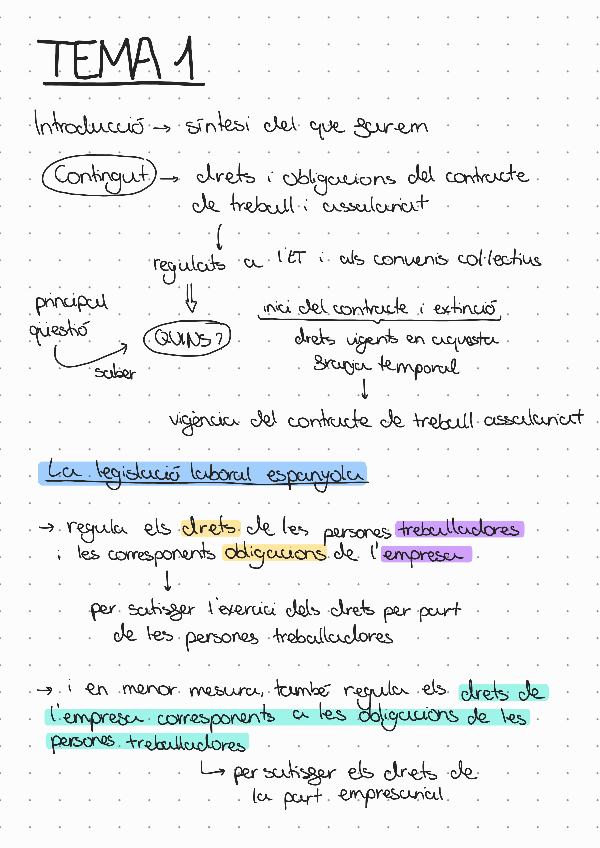 TEMA 1
Introducció → síntesi del que farem
Contingut → drets i obligacions del contracte
de treball i assalariat
↓
regulats a l'ET i als convenis col·lectius
⇓
principal
qüestió
saber
QUINS?
inici del contracte i extinció
drets vigents en aquesta
franja temporal
↓
vigència del contracte de treball assalariat
La legislació laboral espanyola
→ regula els drets de les persones treballadores
i les corresponents obligacions de l'empresa
↓
per satisfer l'exercici dels drets per part
de les persones treballadores
→ i en menor mesura, també regula els drets de
l'empresa corresponents a les obligacions de les
persones treballadores
↳ per satisfer els drets de
la part empresarial.